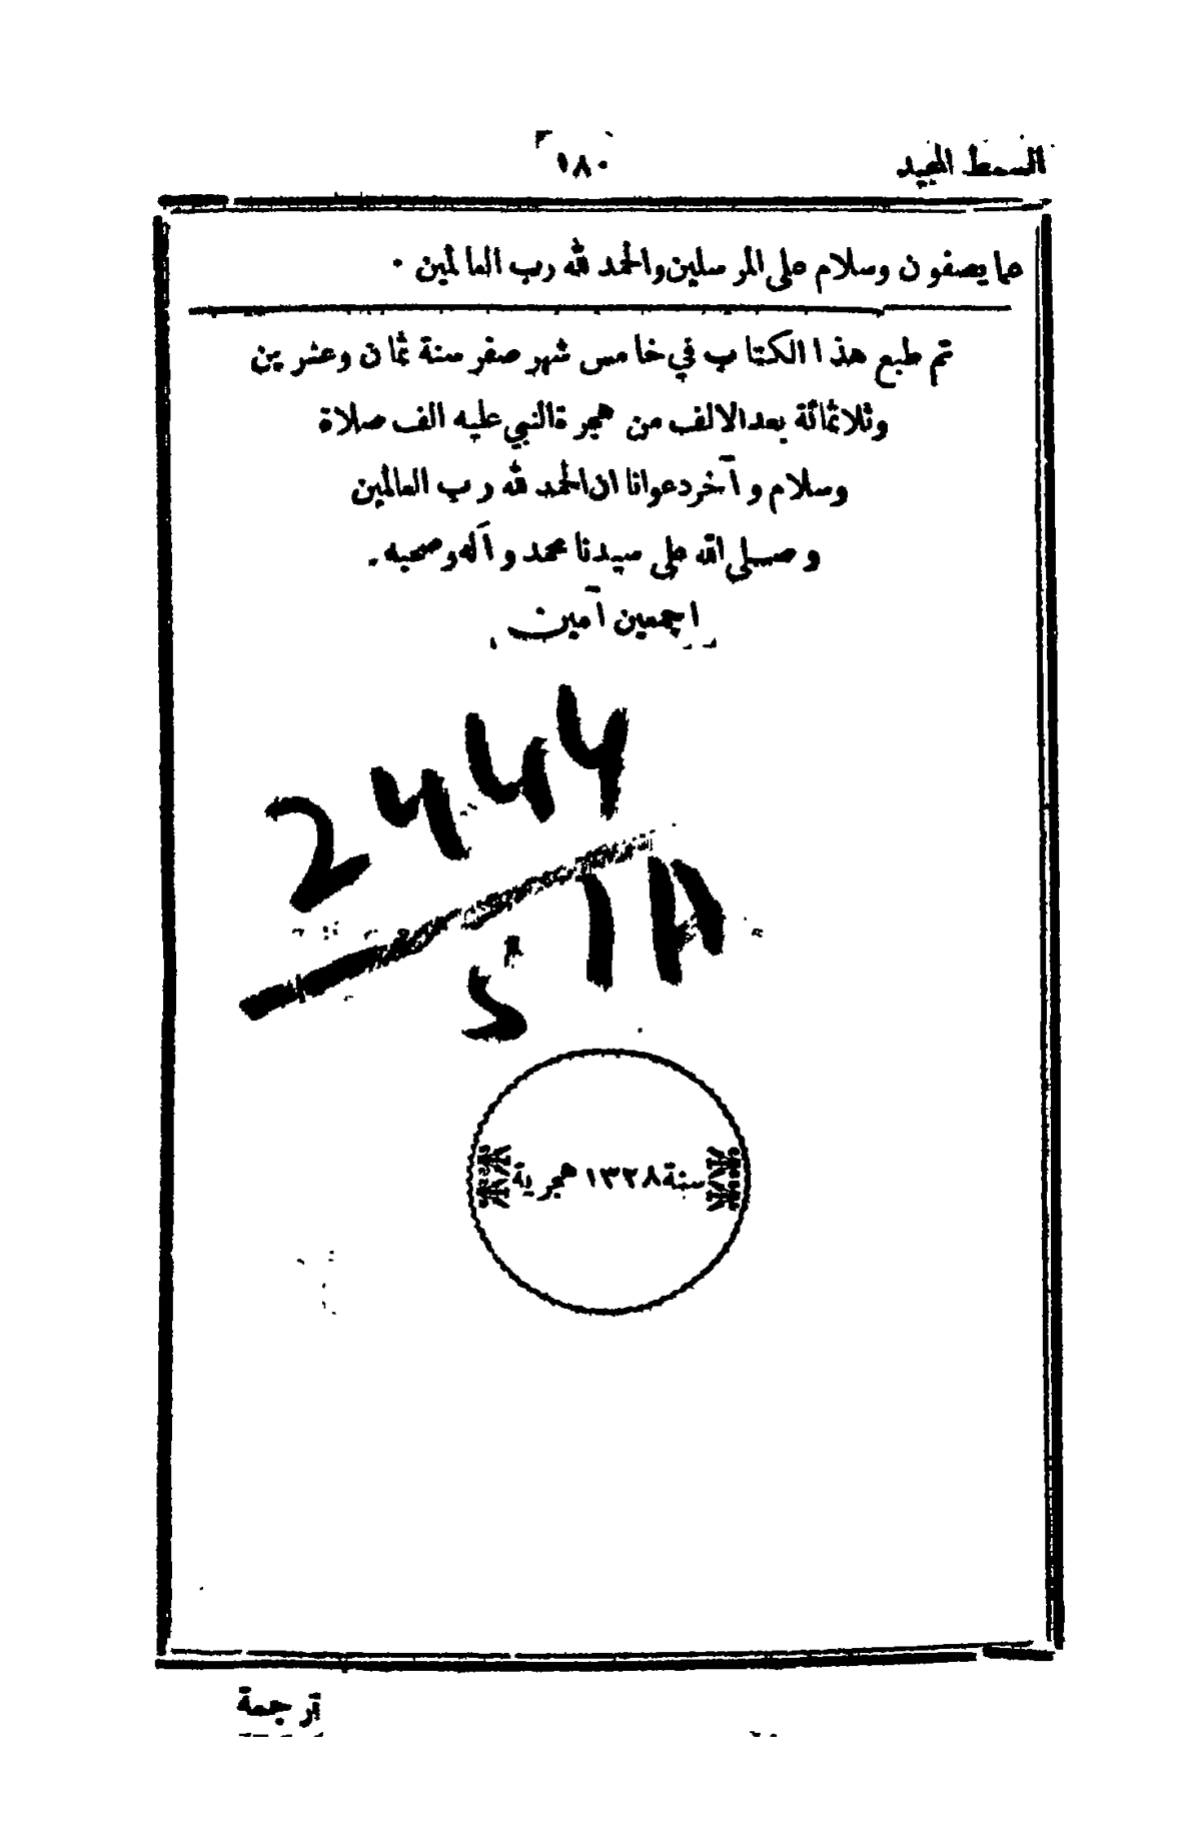 السمط المجيد
١٨٠
عما يصفون وسلام على المرسلين والحمد لله رب العالمين ٠
تم طبع هذا الكتاب في خامس شهر صفر سنة ثمان وعشرين
وثلاثمائة بعد الالف من هجرة النبي عليه الف صلاة
وسلام و آخر دعوانا ان الحمد لله رب العالمين
و صلى الله على سيدنا محمد و آله وصحبه ٠
اجمعين آمين
سنة ١٣٢٨ هجرية
ترجمة